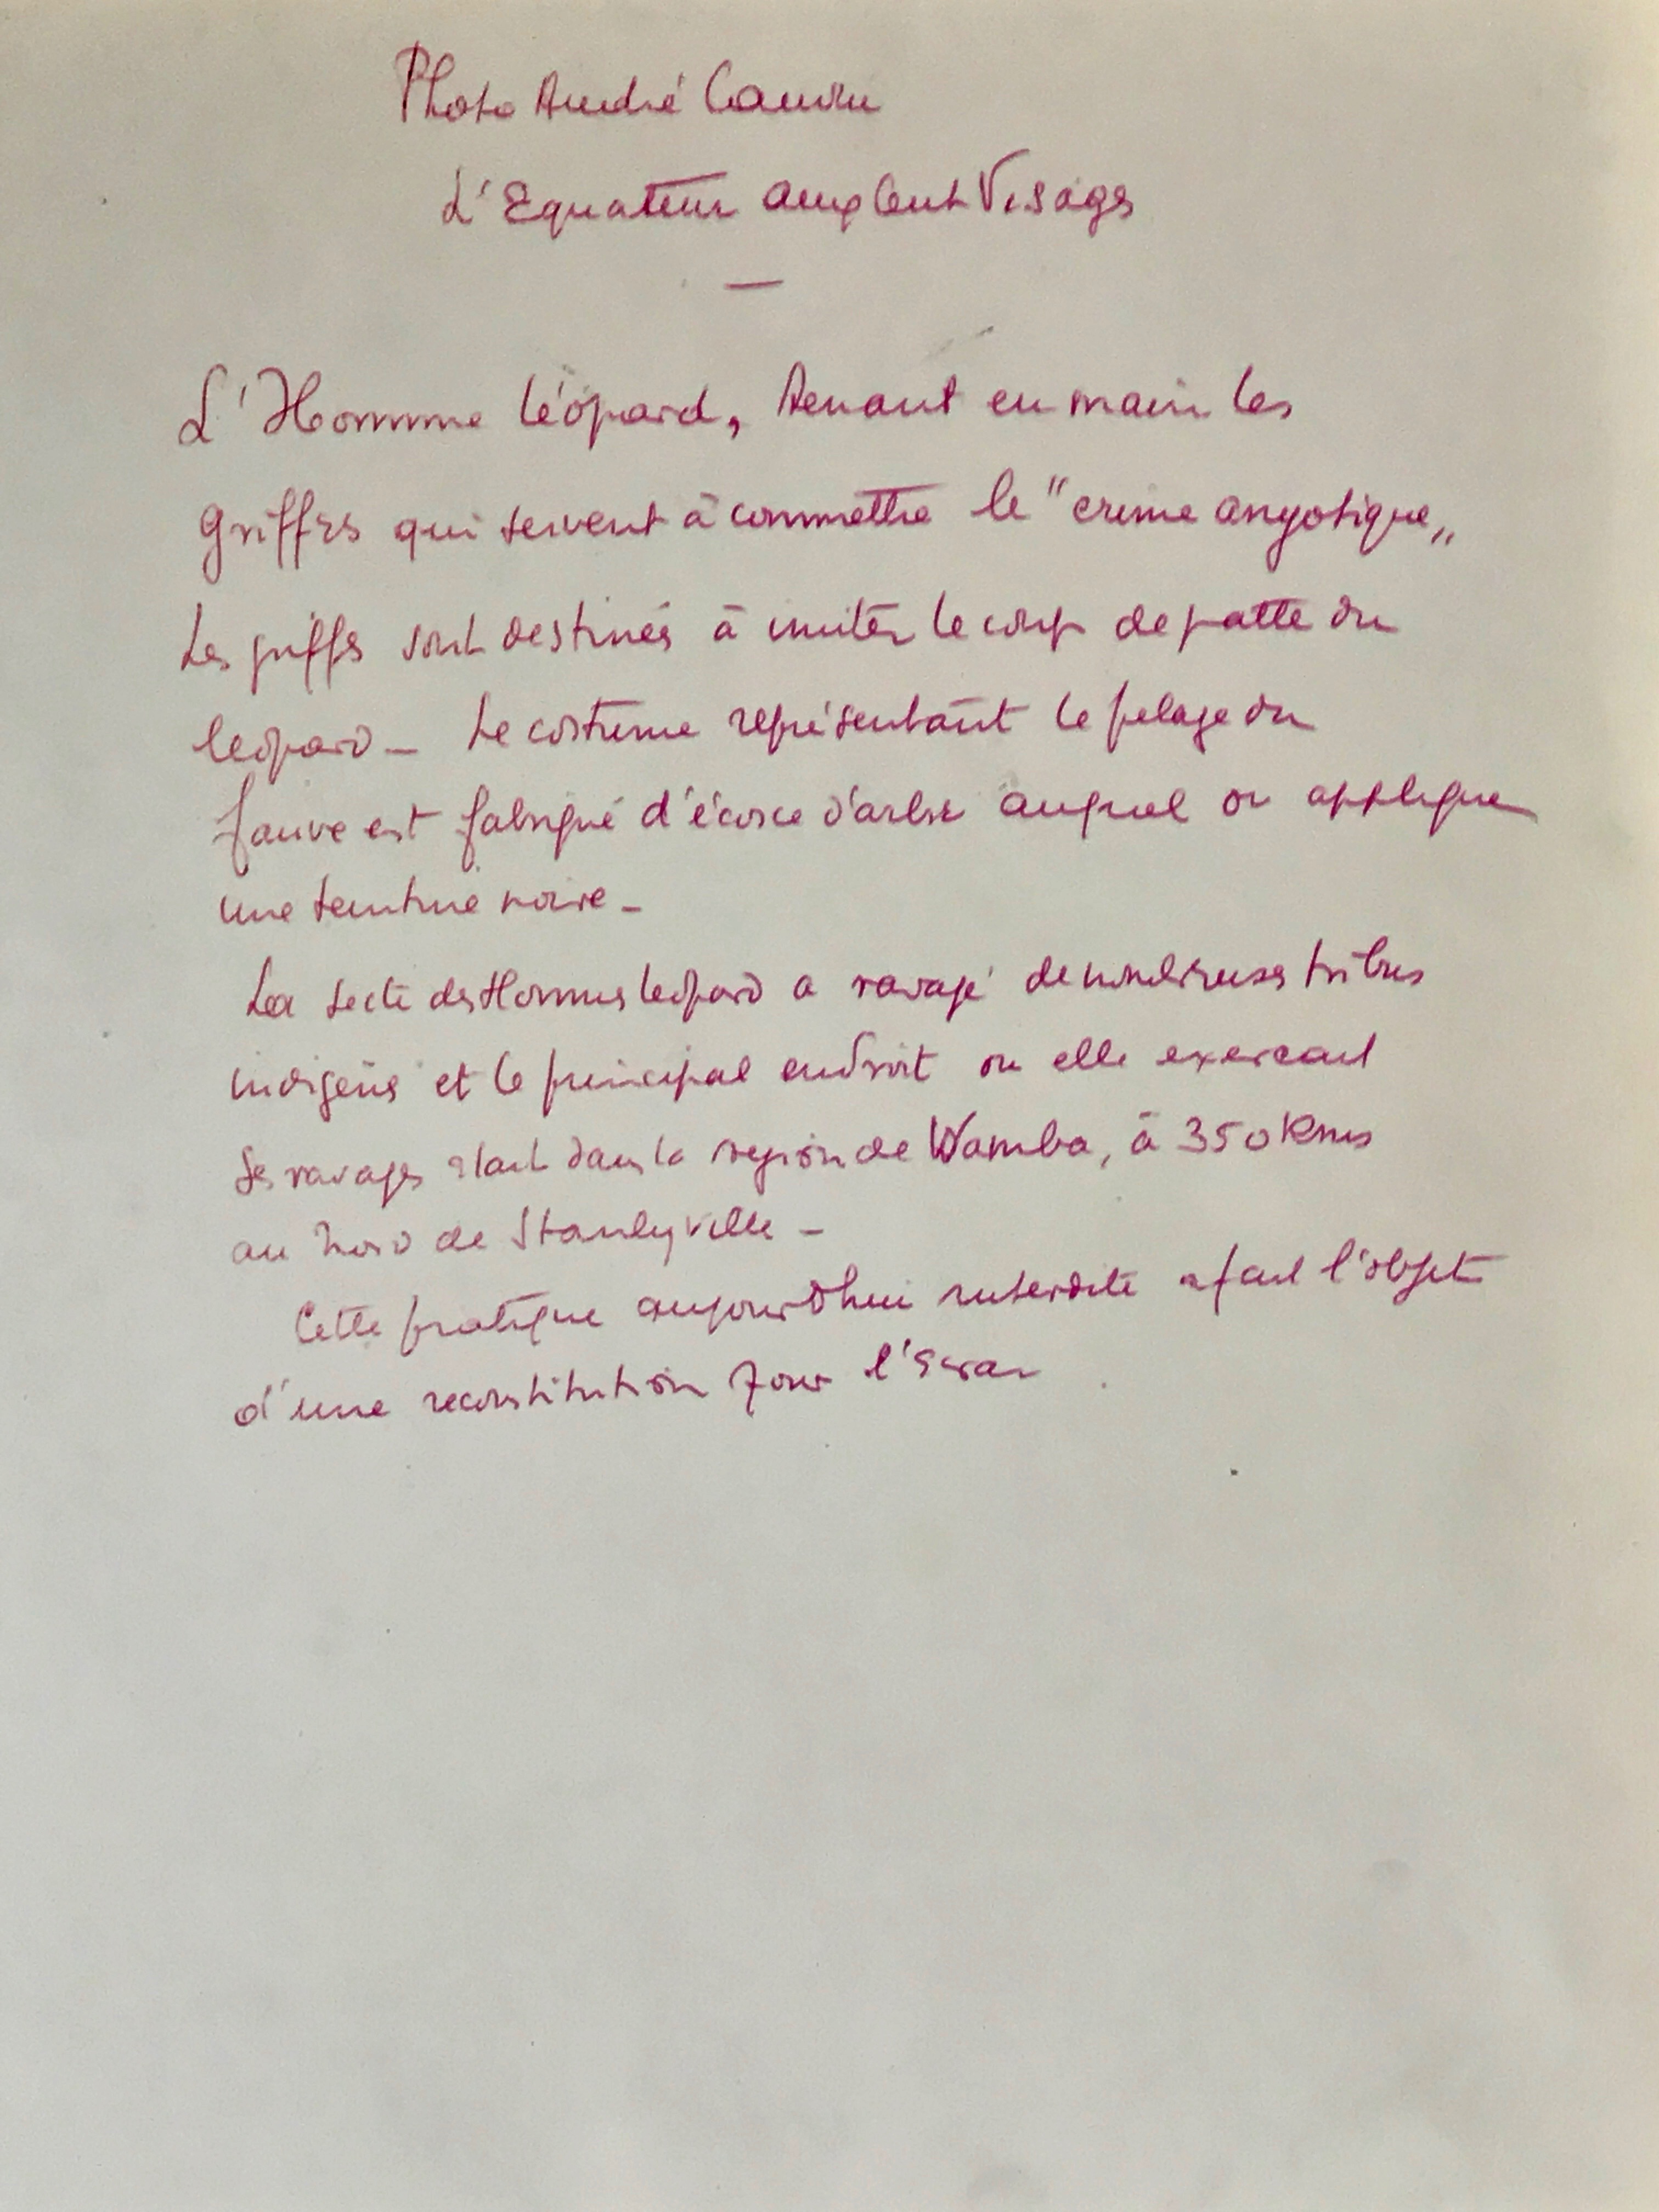 Photo André Cauvin
L'Equateur aux Cent Visages
—
L'Homme léopard, tenant en main les
griffes qui servent à commettre le "crime anyotique„
Les griffes sont destinés à imiter le coup de patte du
leopard – Le costume représentant le pelage du
fauve est fabriqué d'écorce d'arbre auquel on applique
une teinture noire –
La secte des Hommes leopard a ravagé de nombreuses tribus
indigènes et le principal endroit ou elle exercait
ses ravages etait dans la region de Wamba, à 350 Kms
au Nord de Stanleyville –
Cette pratique aujourd'hui interdite a fait l'objet
d'une reconstitution pour l'écran